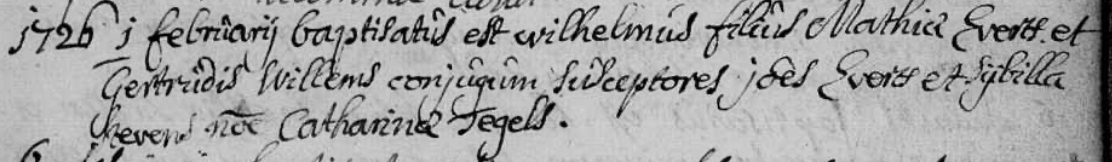 1726 j februarij baptisatus est wilhelmus filius Mathiæ Everts et
Gertrudis Willems conjugum susceptores joes Everts et Sybilla
Stevens noe Catharinæ Tegels.